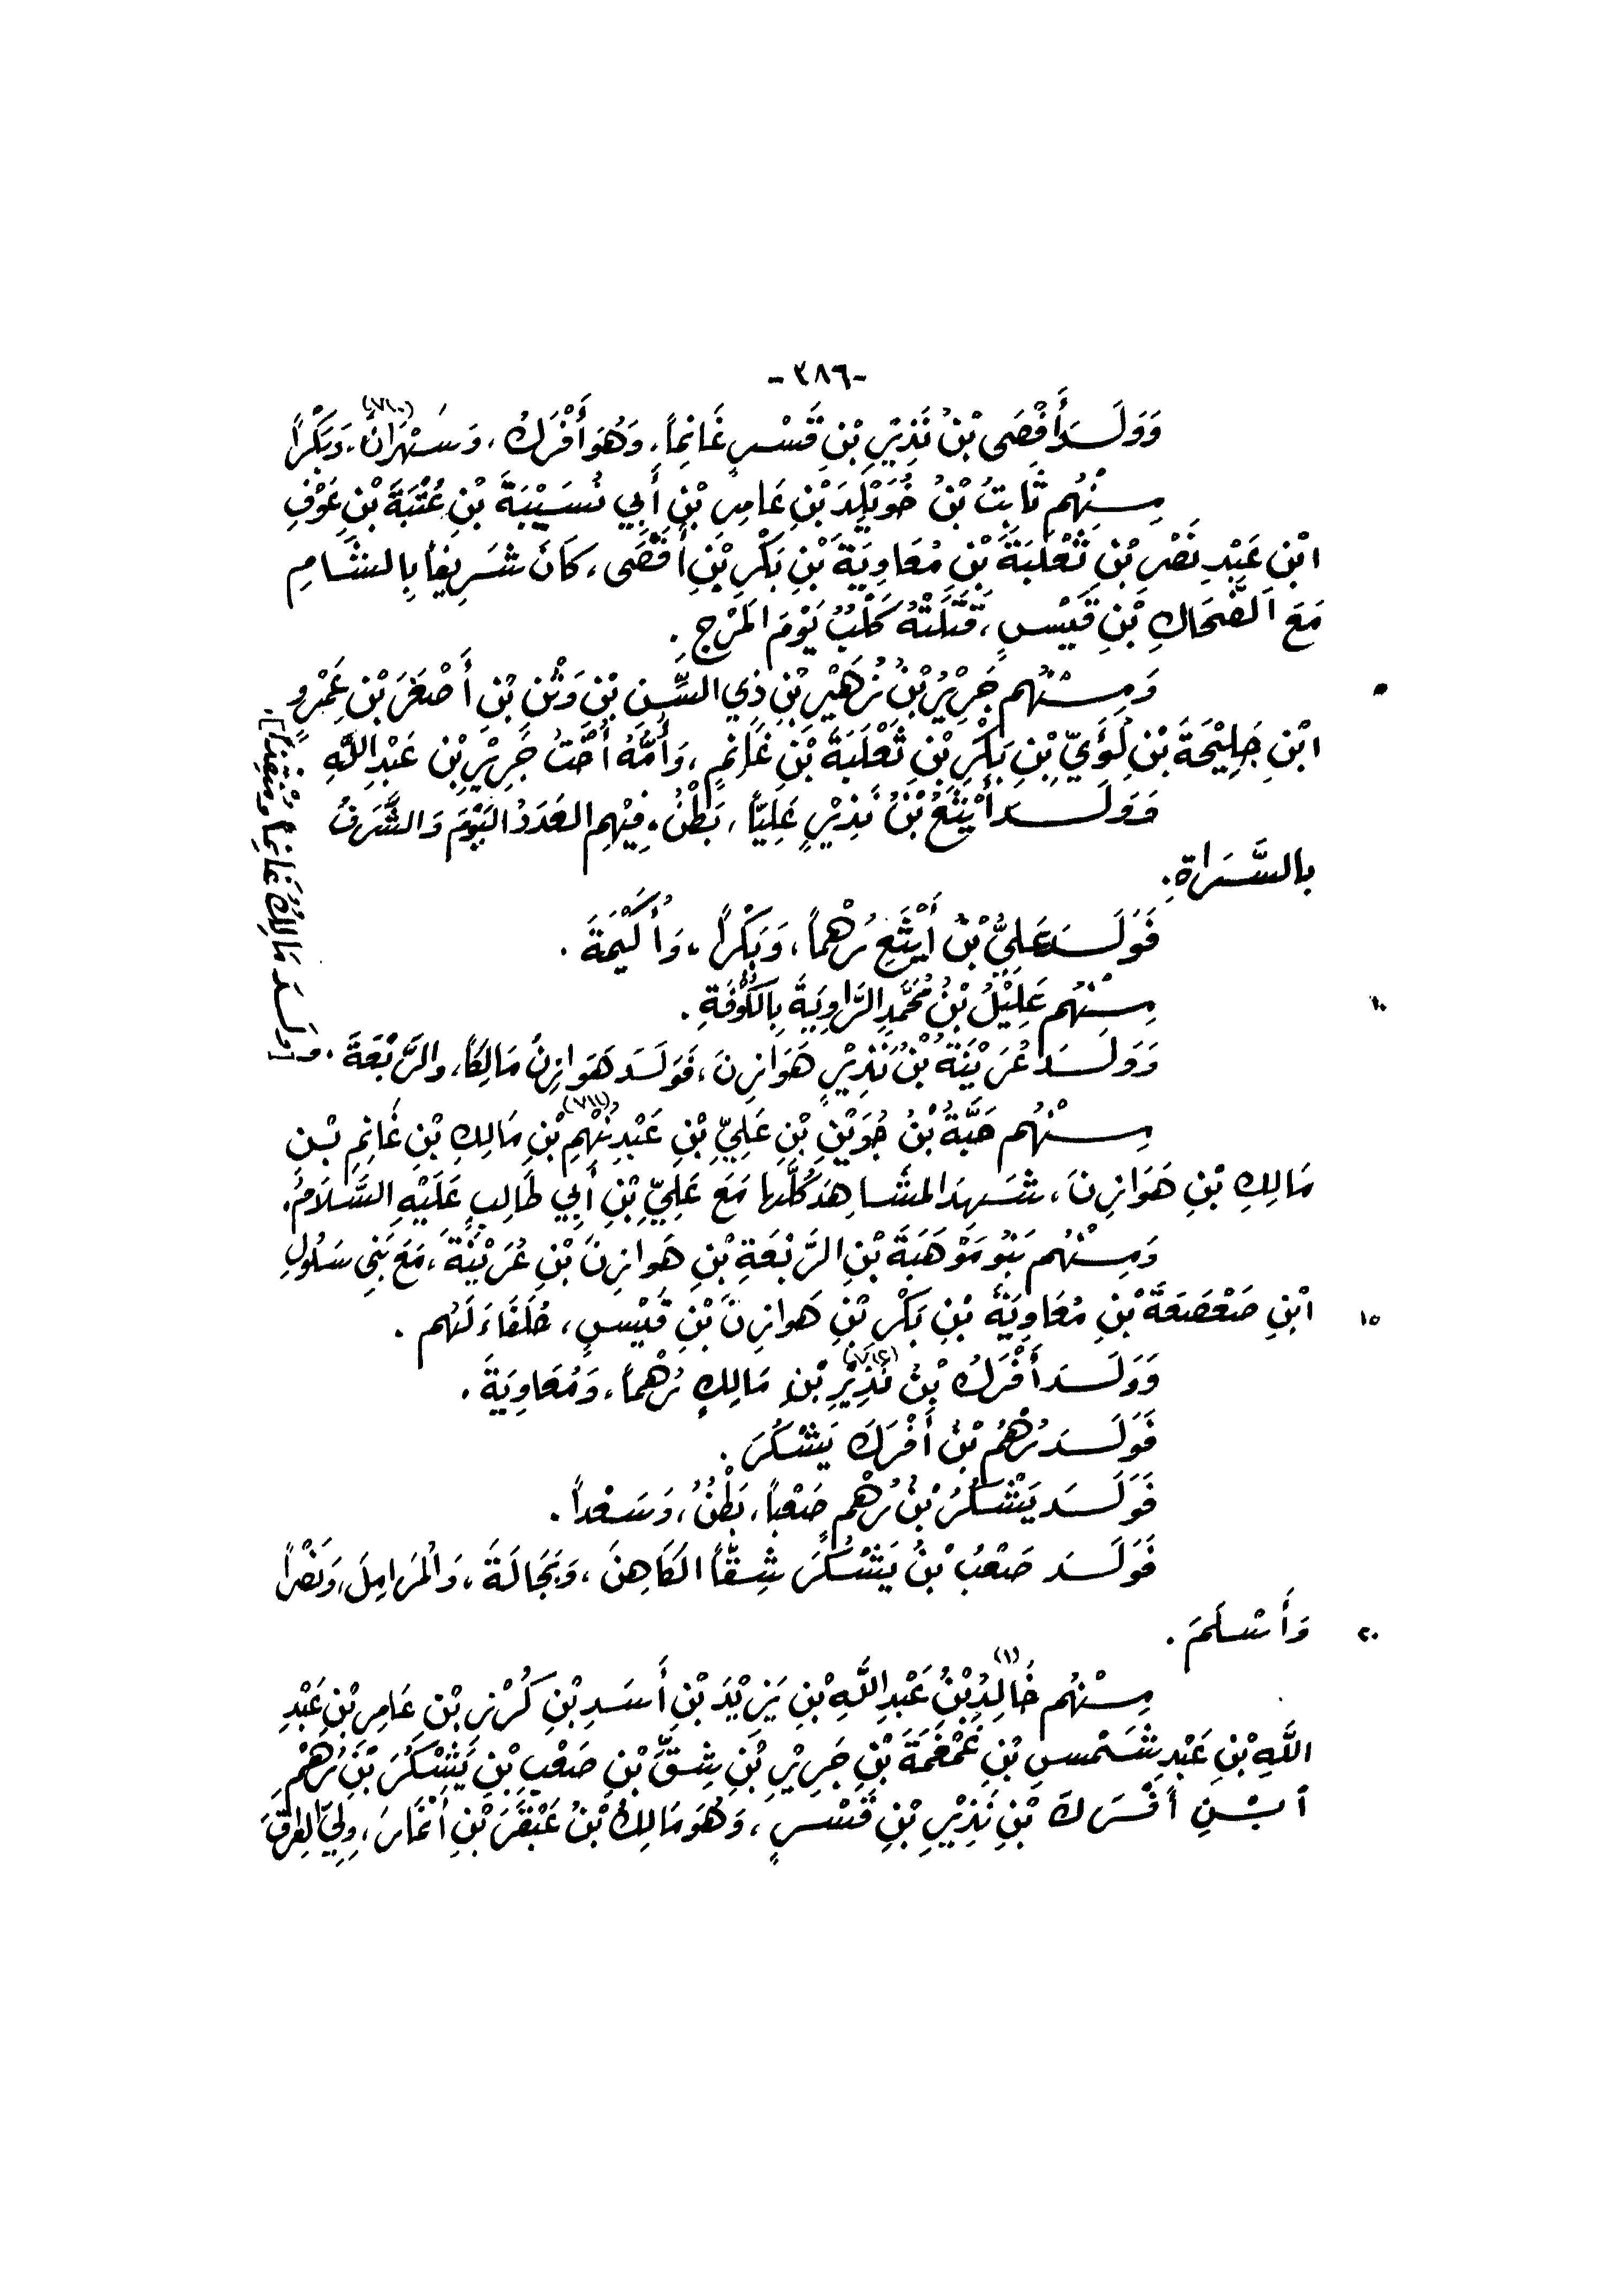 -٣٨٦-
وَوَلَدَ أَفْصَى بْنُ نَذِيْرِ بْنِ قَسْرٍ غَانِماً، وَهُوَ أَفْرَكُ، وَسَهْرَانَ(٧١٠)، وَبَكْراً
مِنْهُم ثَابِتُ بْنُ خُوَيْلِدَ بْنِ عَامِرِ بْنِ أَبِي نُسَيْبَةَ بْنِ عُتْبَةَ بْنِ عَوْفِ
ابْنِ عَبْدِ نَصْرِ بْنِ ثَعْلَبَةَ بْنِ مُعَاوِيَةَ بْنِ بَكْرِ بْنِ أَفْصَى، كَانَ شَرِيفاً بِالشَامِ
مَعَ الضَّحَاكِ بْنِ قَيْسٍ، قَتَلَتْهُ كَلْبٌ يَوْمَ المَرْجِ.
٥ وَمِنْهُم جَرِيْرُ بْنُ زُهَيْرِ بْنِ ذِي السِّنِ بْنِ وَثْنِ بْنِ أَصْغَرَ بْنِ عَمْرِو
ابْنِ جَلِيْحَةَ بْنِ لُؤَيِّ بْنِ بَكْرِ بْنِ ثَعْلَبَةَ بْنِ غَانِمٍ، وَأُمُّهُ أُخْتُ جَرِيْرِ بْنِ عَبْدِ اللَّهِ
وَوَلَدَ أَيْثَعُ بْنُ نَذِيْرٍ عَلِيّاً، بَطْنٌ، فِيْهِم العَدَدُ اليَوْمَ وَالشَّرَفُ
بالسَّرَاةِ.
فَوَلَدَ عَلِيُّ بْنُ أَيْثَعِ رُهْماً، وَبَكْراً، وَأُكَيْمَةَ.
١٠ مِنْهُم عَلِيْلُ بْنُ مُحَمَّدِ الرَّاوِيَةَ بِالكُوْفَةِ.
وَوَلَدَ عُرَيْنَةُ بْنُ نَذِيْرٍ هَوَازِنَ، فَوَلَدَ هَوَازِنُ مَالِكاً، والرَّبْعَةَ. و
[وَلَدَ مَالِكُ غَانِماً ومُنْقِذاً].
مِنْهُم حَبَّةُ بْنُ جُوَيْنِ بْنِ عَلِيِّ بْنِ عَبْدِ نُهْمِ(٧١١) بْنِ مَالِكِ بْنِ غَانِمِ بْنِ
مَالِكِ بْنِ هَوَازِنَ، شَهِدَ المشَاهِدَ كُلَّهَا مَعَ عَلِيِّ بْنِ أَبِي طَالِبٍ عَلَيْهِ السَّلَامُ.
وَمِنْهُم بَنُو مَوْهَبَةَ بْنِ الرَّبْعَةِ بْنِ هَوازِنَ بْنِ عُرَيْنَةَ، مَعَ بَنِي سَلُولِ
١٥ ابْنِ صَعْصَعَةَ بْنِ مُعَاوِيَةَ بْنِ بَكْرِ بْنِ هَوازِنَ بْنِ قَيْسٍ، حُلَفَاءَ لَهُم.
وَوَلَدَ أَفْرَكُ بْنُ نَذِيْرِ(٧١٢) بْنِ مَالِكٍ رُهْماً، وَمُعَاوِيَةَ.
فَوَلَدَ رُهْمُ بْنُ أَفْرَكَ يَشْكُرَ.
فَوَلَدَ يَشْكُرُ بْنُ رُهْمٍ صَعْباً، بَطْنٌ، وَسَعْداً.
فَوَلَدَ صَعْبُ بْنُ يَشْكُرَ شِقّاً الكَاهِنَ، وَبَجَالَةَ، وَالمَرَامِلَ، وَنَصْراً
٢٠ وَأَسْلَمَ.
مِنْهُم خَالِدُ(١) بْنُ عَبْدِ اللَّهِ بْنِ يَزِيْدَ بْنِ أَسَدِ بْنِ كُرْزِ بْنِ عَامِرِ بْنِ عَبْدِ
اللَّهِ بْنِ عَبْدِ شَمْسِ بْنِ غَمْغَمَةَ بْنِ جَرِيْرِ بْنِ شِقِّ بْنِ صَعْبِ بْنِ يَشْكُرَ بْنِ رُهْمِ
ابْنِ أَفْرَكَ بْنِ نَذِيْرِ بْنِ قَسْرٍ، وَهُوَ مَالِكُ بْنُ عَبْقَرَ بْنِ أَنْمَارَ، وَلِيَ العِرَاقَ